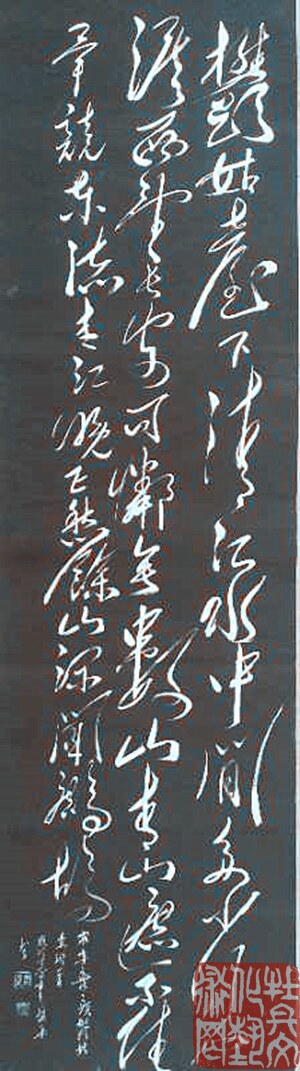 鬱孤臺下清江水中間多少行人
淚西北望長安可憐無數山青山遮不住
畢竟東流去江晚正愁餘山深聞鷓鴣